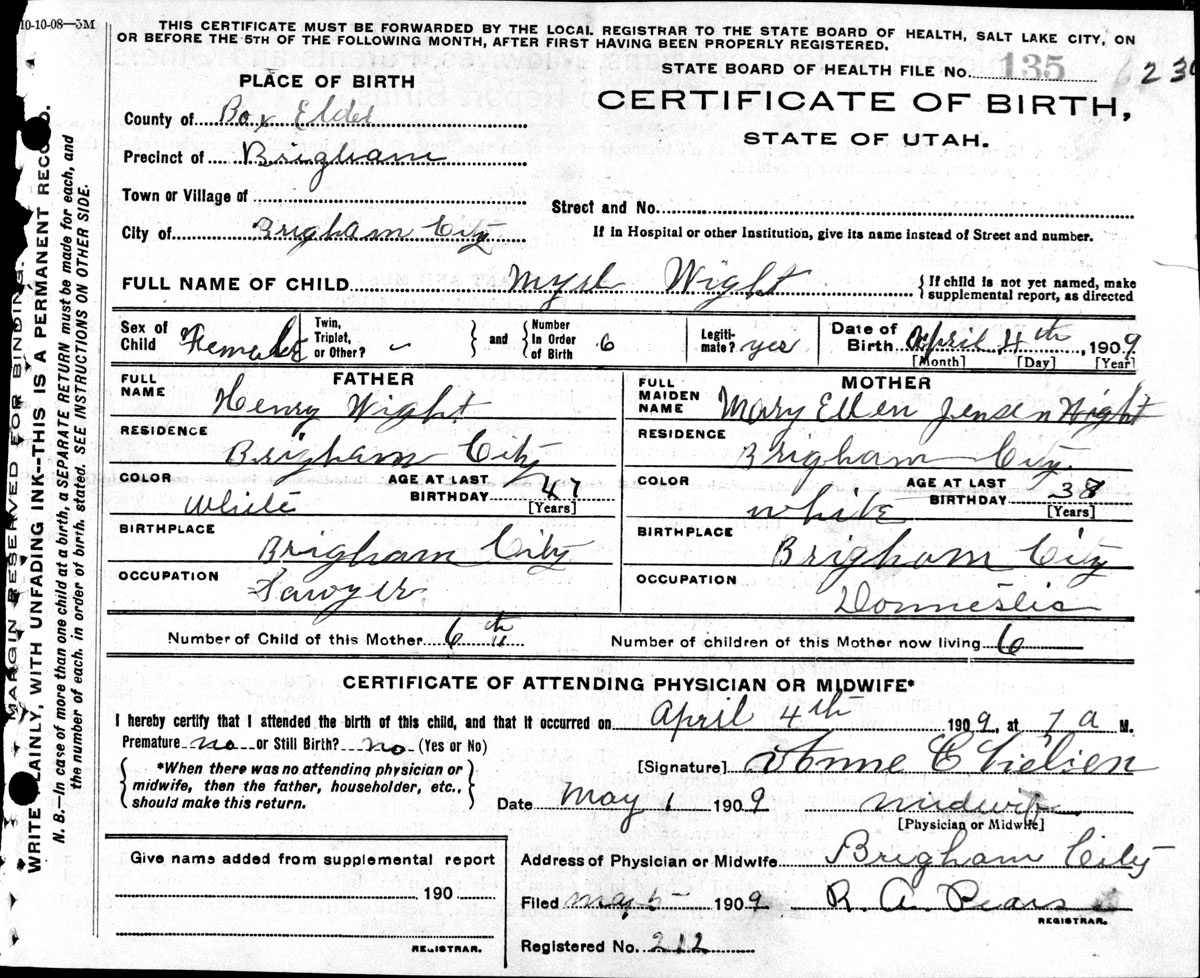 10-10-08—5M
THIS CERTIFICATE MUST BE FORWARDED BY THE LOCAL REGISTRAR TO THE STATE BOARD OF HEALTH, SALT LAKE CITY, ON
OR BEFORE THE 5TH OF THE FOLLOWING MONTH, AFTER FIRST HAVING BEEN PROPERLY REGISTERED.
STATE BOARD OF HEALTH FILE No. 135
PLACE OF BIRTH
CERTIFICATE OF BIRTH,
STATE OF UTAH.
County of Box Elder
Precinct of Brigham
Town or Village of
Street and No.
City of Brigham City
If in Hospital or other Institution, give its name instead of Street and number.
FULL NAME OF CHILD Wight { If child is not yet named, make
supplemental report, as directed
Sex of Child Female Twin, Triplet, or Other? - } and { Number In Order of Birth 6 Legiti-mate? yes Date of Birth April 4th, 1909
[Month] [Day] [Year]
FATHER
FULL NAME Henry Wight
RESIDENCE Brigham City
COLOR White AGE AT LAST BIRTHDAY 47 [Years]
BIRTHPLACE Brigham City
OCCUPATION Sawyer
MOTHER
FULL MAIDEN NAME Mary Ellen Jensen Wight
RESIDENCE Brigham City
COLOR White AGE AT LAST BIRTHDAY 38 [Years]
BIRTHPLACE Brigham City
OCCUPATION Domnestic
Number of Child of this Mother 6th Number of children of this Mother now living 6
CERTIFICATE OF ATTENDING PHYSICIAN OR MIDWIFE*
I hereby certify that I attended the birth of this child, and that it occurred on April 4th 1909, at 7 a M.
Premature no or Still Birth? no (Yes or No)
{ *When there was no attending physician or
midwife, then the father, householder, etc.,
should make this return. }
[Signature] Anne C
Date May 1 1909 midwife
[Physician or Midwife]
Give name added from supplemental report
190
REGISTRAR.
Address of Physician or Midwife Brigham City
Filed May 5 1909 R. A. Pears
REGISTRAR.
Registered No. 212
MARGIN RESERVED FOR BINDING.
WRITE PLAINLY, WITH UNFADING INK--THIS IS A PERMANENT RECORD.
N. B.—In case of more than one child at a birth, a SEPARATE RETURN must be made for each, and
the number of each. in order of birth. stated. SEE INSTRUCTIONS ON OTHER SIDE.